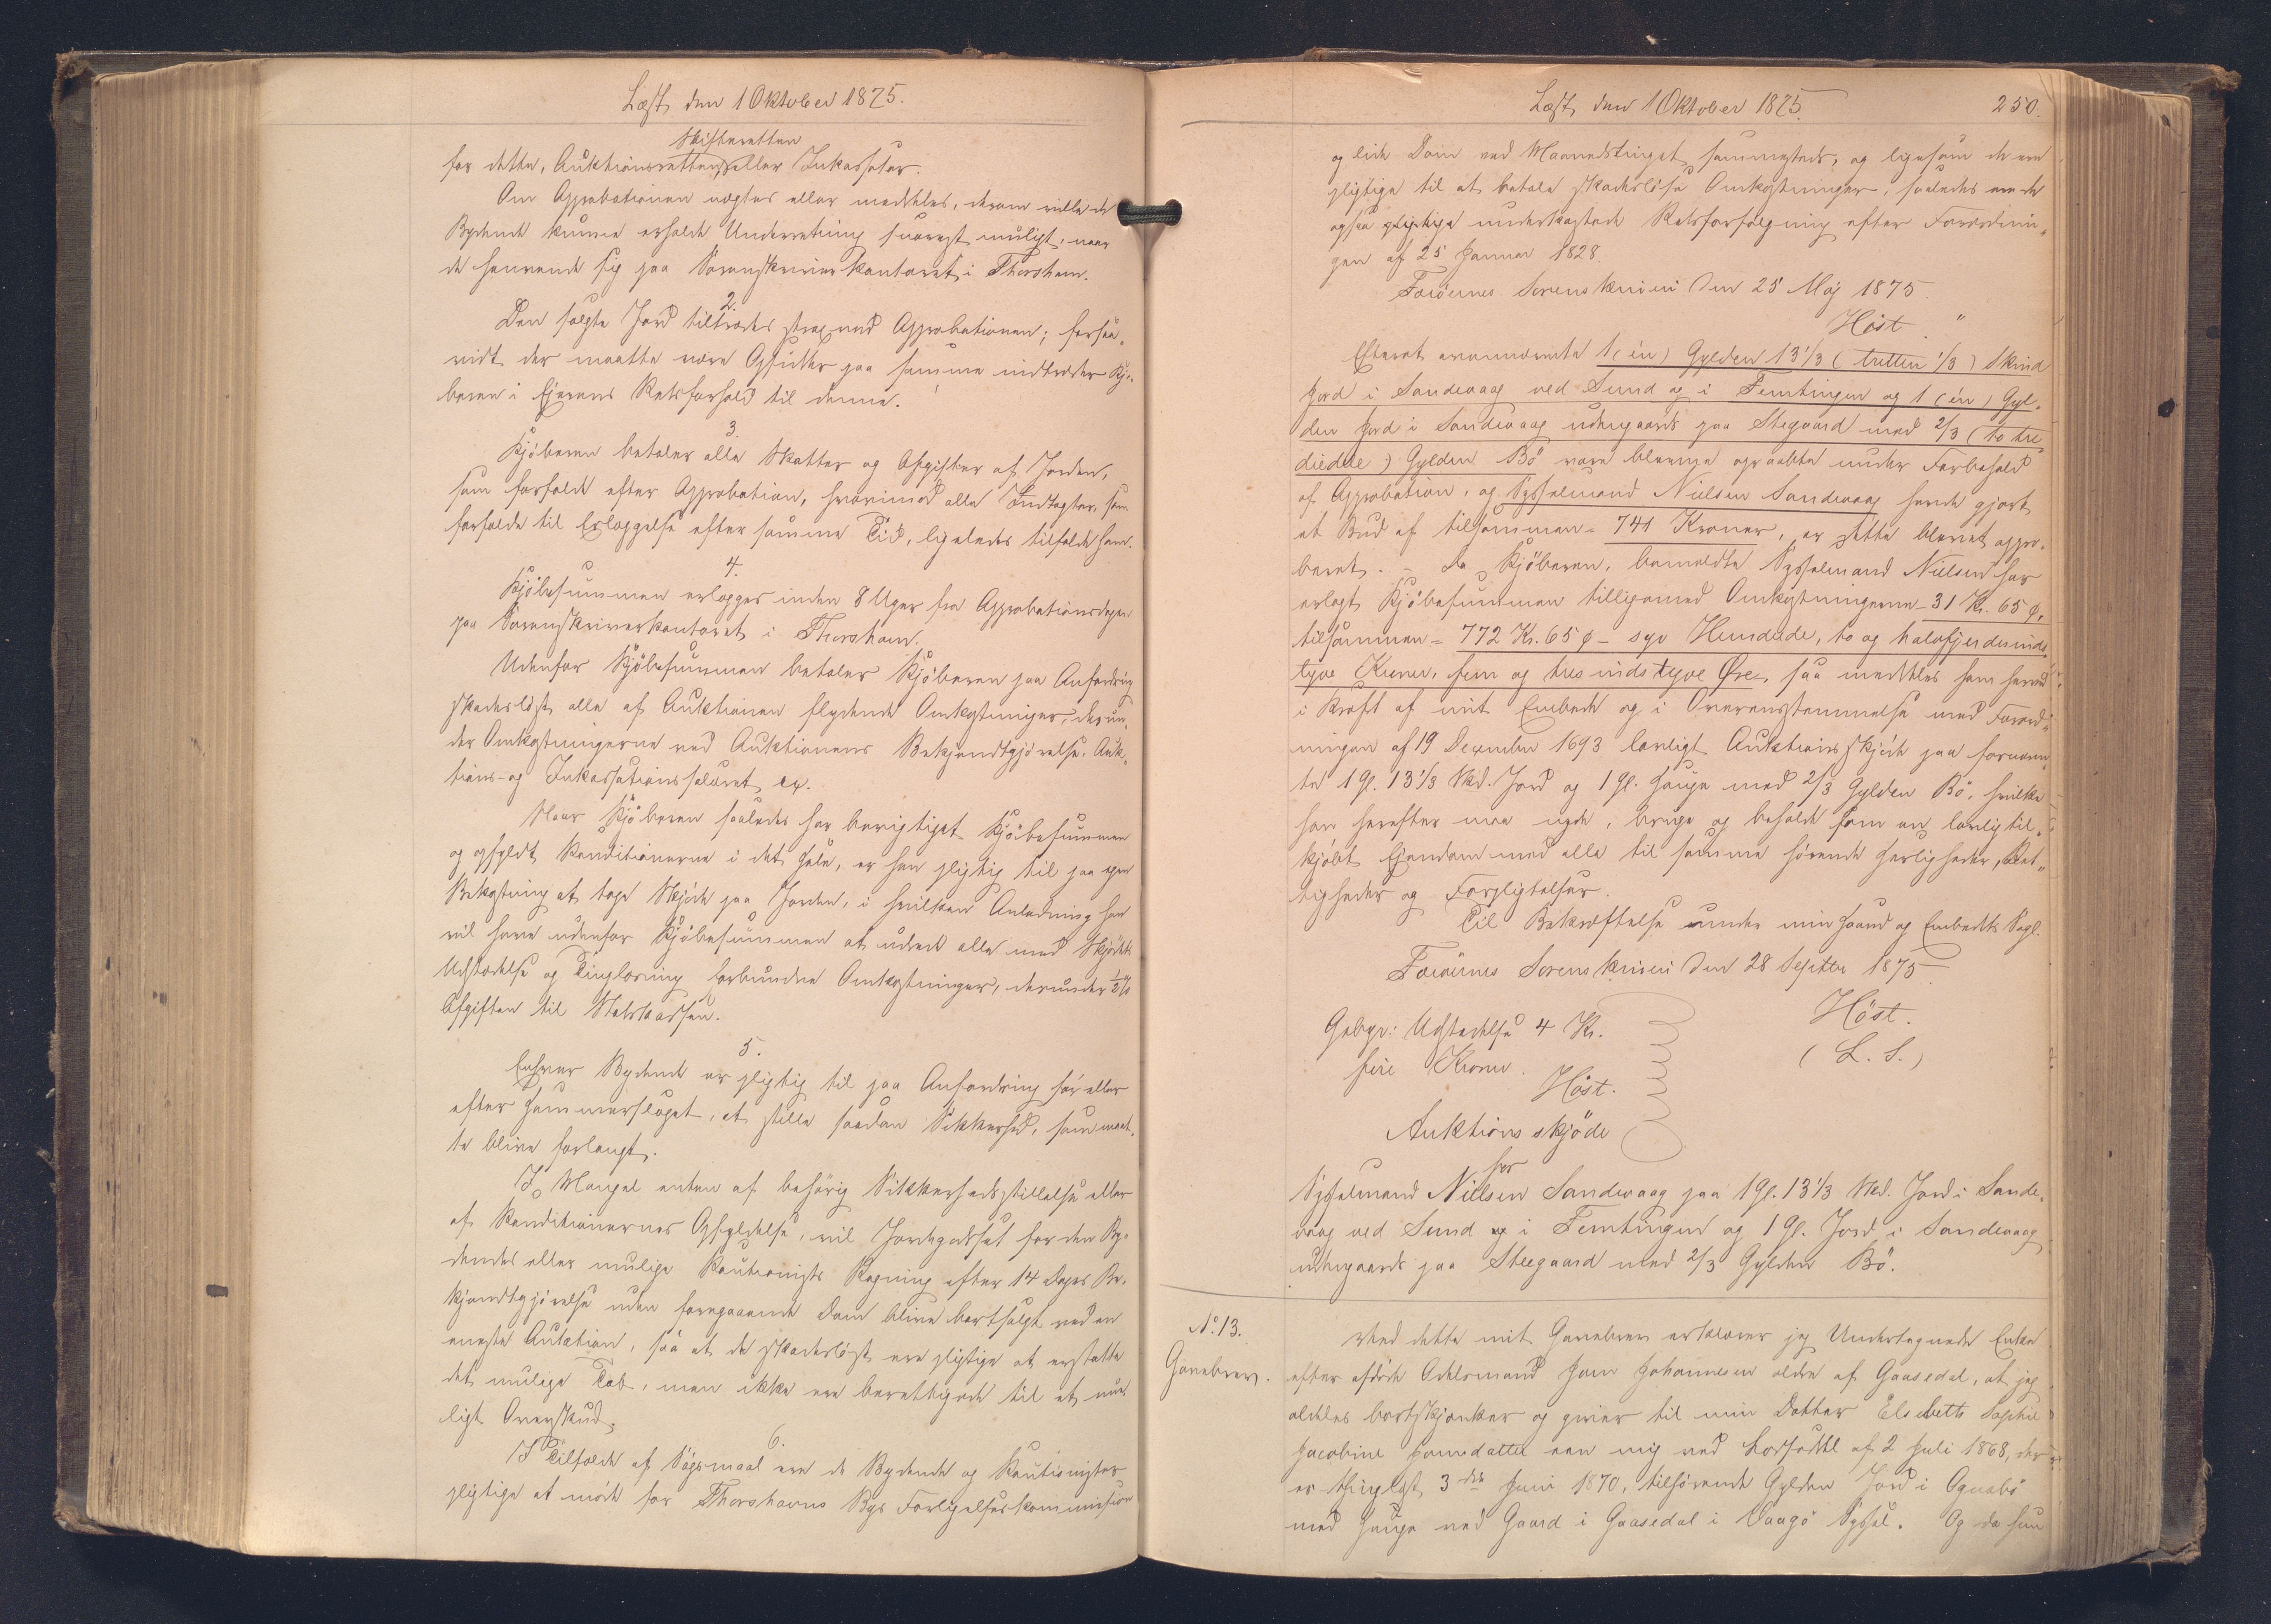 Læst den 1 Oktober 1875.
Skifteretten
for dette, Auktionsretten eller Inkassator.
Om Approbationen nægtes eller meddeles, derom ville de
Bydende kunne erholde Underretning snarest muligt, naar
de henvende sig paa Sorenskriverkontoret i Thorshavn.
2.
Den solgte Jord tiltrædes strax med Approbationen; forsaa„
vidt der maatte være Opsidder paa samme indtræder Kjö„
beren i Ejerens Retsforhold til denne.
3.
Kjöberen betaler alle Skatter og Afgifter af Jorden,
som forfalde efter Approbation, hvorimod alle Indtægter, som
forfalde til Erlæggelse efter samme Tid, ligeledes tilfalde ham.
4.
Kjöbesummen erlægges inden 8 Uger fra Approbationsdagen
paa Sorenskriverkontoret i Thorshavn.
Udenfor Kjöbesummen betaler Kjöberen paa Anfordring
skadeslöst alle af Auktionen flydende Omkostninger, derun„
der Omkostningerne ved Auktionens Bekjendtgjörelse, Auk„
tions- og Inkassationssalæret etc.
Naar Kjöberen saaledes har berigtiget Kjöbesummen
og opfyldt Konditionerne i det Hele, er han pligtig til paa egen
Bekostning at tage Skjöde paa Jorden, i hvilken Anledning han
vil have udenfor Kjöbesummen at udrede alle med Skjödets
Udstedelse og Tinglæsning forbundne Omkostninger, derunder ½ %
Afgiften til Statskassen.
5.
Enhver Bydende er pligtig til paa Anfordring för eller
efter Hammerslaget, at stille saadan Sikkerhed, som maat„
te blive forlangt.
I Mangel enten af behörig Sikkerhedsstillelse eller
af Konditionernes Opfyldelse, vil Jordegodset for den By„
dendes eller mulige Kautionists Regning efter 14 Dages Be„
kjendtgjörelse uden foregaaende Dom blive bortsolgt ved en
eneste Auktion, saa at de skadeslöst ere pligtige at erstatte
det mulige Tab, men ikke ere berettigede til et mu
ligt Overskud.
6.
I Tilfælde af Sögsmaal ere de Bydende og Kautionister
pligtige at möde for Thorshavns Byes Forligelseskommission
Læst den 1 Oktober 1875.
250.
og lide Dom ved Maanedstinget sammesteds, og ligesom de ere
pligtige til at betale skadeslöse Omkostninger, saaledes ere de
ogsaa pligtige underkastede Retsforfölgning efter Forordnin„
gen af 25 Januar 1828.
Færöernes Sorenskriveri den 25 Maj 1875.
Höst. "
Efterat ovennævnte 1 (én) Gylden 13 1/3 (tretten 1/3) Skind
Jord i Sandevaag ved Sund og i Femtingen og 1 (én) Gyl„
den Jord i Sandevaag udengaards paa Stegaard med 2/3 (to tre
diedele) Gylden Bö vare blevne opraabte under Forbehold
af Approbation, og Sysselmand Nielsen Sandevaag havde gjort
et Bud af tilsammen = 741 Kroner, er dette blevet appro„
beret. – Da Kjöberen, bemeldte Sysselmand Nielsen har
erlagt Kjöbesummen tilligemed Omkostningerne – 31 Kr. 65 ø,
tilsammen = 772 Kr. 65 ø – syv Hundrede, to og halvfjerdesinds„
tyve Kroner, fem og tresindstyve Øre, saa meddeles ham herved
i Kraft af mit Embede og i Overensstemmelse med Forord„
ningen af 19 December 1693 lovligt Auktionsskjöde paa fornævn„
te 1 Gl. 13 1/3 Skd. Jord og 1 Gl. Hauge med 2/3 Gylden Bö, hvilke
han herefter maa nyde, bruge og beholde som en lovlig til„
kjöbt Ejendom med alle til samme hörende Herligheder, Ret„
tigheder og Forpligtelser.
Til Bekræftelse under min Haand og Embedets Segl.
Færöernes Sorenskriveri den 28 Septbr 1875
Höst.
(L. S.)
Gebyr: Udstedelse 4 Kr.
fire Kroner.
Höst.
Auktionsskjöde
for
Sysselmand Nielsen Sandevaag paa 1 Gl. 13 1/3 Skd. Jord i Sande„
vaag ved Sund og i Femtingen og 1 Gl. Jord i Sandevaag
udengaards paa Steegaard med 2/3 Gylden Bö.
No. 13.
Gavebrev.
Med dette mit Gavebrev erklærer jeg Undertegnede Enke
efter afdöde Odelsmand Joen Johannesen ældre af Gaasedal, at jeg
aldeles bortskjænker og giver til min Datter Elsebeth Sophie
Jacobine Joensdatter een mig ved Lodseddel af 2 Juli 1868, der
er thinglæst 3die Juni 1870, tilhörende Gylden Jord i Ognabö
med Hauge ved Gaard i Gaasedal i Vaagö Syssel. Og da hun